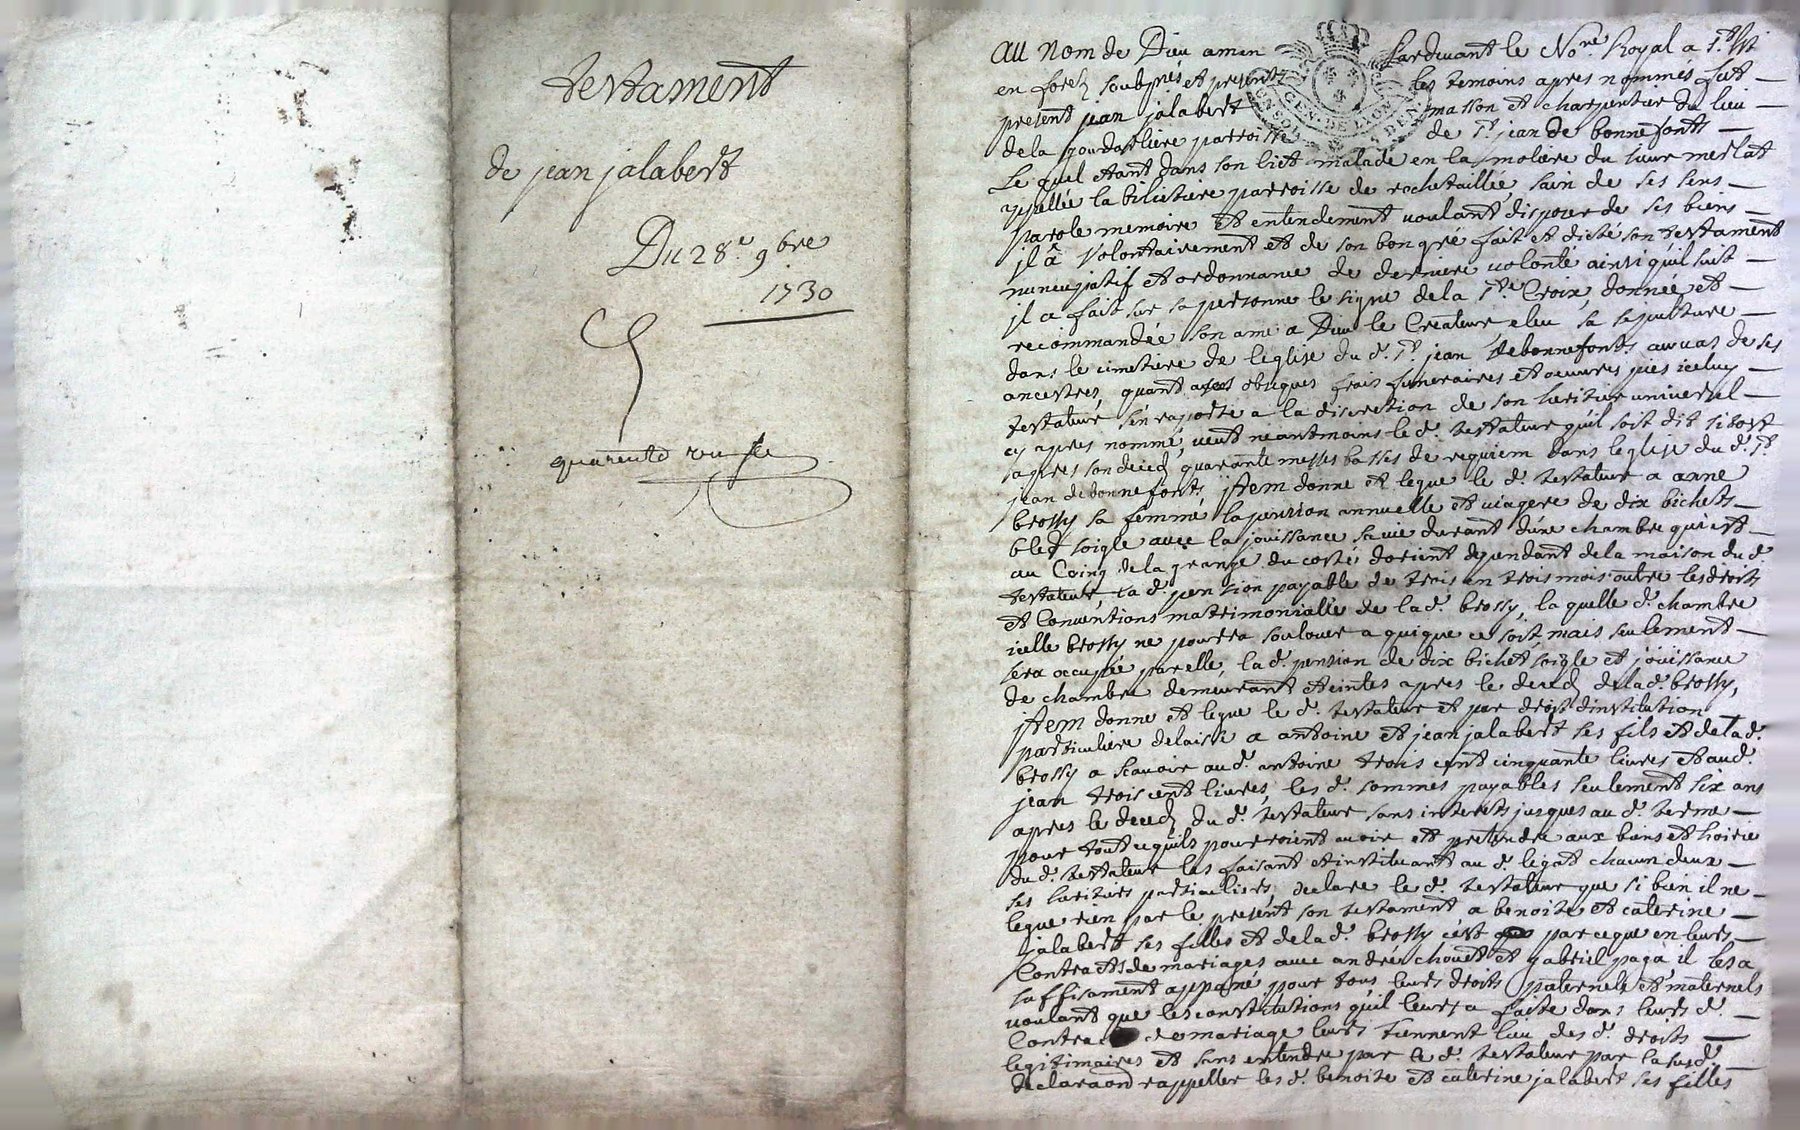 testament
de jean jalabert
Du 28e. 9bre
1730
quarente
au nom de Dieu amen Pardevant le Nore. Royal a St.
en forez soubsné. et presents les temoins apres nommés fut
present jean jalabert masson et charpentier du lieu
de la gourdasliere parroisse de St. jean de bonnefonts
Le quel etant dans son lict malade en la moliere du sieur merlat
appellée la biliitiere parroisse de rochetaillée, sain de ses sens
parole memoire et entendement voulant disposer de ses biens
jl â volontairement et de son bon gré fait et dicté son testament
nuncupatif et ordonnance de derniere volonté ainsi qu'il suit
jl a fait sur sa personne le signe de la Ste. Croix, donnée et
recommandée son ame a Dieu le Createur eleu sa sepulture
dans le cimetiere de leglise du d. St. jean debonnefonts au vas de ses
ancestres, quant a ses obseques frais funeraires et oeuvres pies iceluy
testateur sen raporte a la discretion de son heritier universel
cy apres nommé, veut neantmoins le d. testateur qu'il soit dit sitost
apres son deced quarante messes basses de requiem dans leglise du d. St.
jean debonnefonts, jtem donne et legue le d. testateur a anne
brossy sa femme la pension annuelle et viagere de dix bichets
bled soigle avec la jouissance sa vie durant d'une chambre qui est
au Coing de la grange du costé dorient dependant de la maison du d.
testateur, la d. pension payable de trois en trois mois outre les droits
et Conventions matrimonialle de la d. brossy, la quelle d. chambre
icelle brossy ne pourra soulouer a quique ce soit mais seulement
sera occupée par elle, la d. pension de dix bichet soigle et jouissance
de chambre demeurant eteintes apres le deced de la d. brossy,
jtem donne et legue le d. testateur et par droit dinstitution
particuliere delaisse a antoine et jean jalabert ses fils et de la d.
brossy a scavoir au d. antoine trois cent cinquante livres et au d.
jean trois cent livres, les d. sommes payables seulement six ans
apres le deced du d. testateur sans interets jusques au d. terme
pour tout ce quils pourroient avoir et pretendre aux biens et hoirie
du d. testateur les faisant et instituant au d. legat chacun deux
ses heritiers particuliers, declare le d. testateur que si bien il ne
legue rien par le present son testament a benoite et caterine
jalabert ses filles et de la d. brossy cest par ceque en leurs
Contracts de mariages avec andré chouet et gabriel paga il les a
suffisament appané pour tous leurs droits paternels et maternels
voulant que les constitutions qu'il leurs a faite dans leurs d.
Contract de mariage leurs tiennent lieu des d. droits
legitimaires et sans entendre par le d. testateur par la susd.
declaraon rappeller les d. benoite et caterine jalabert ses filles